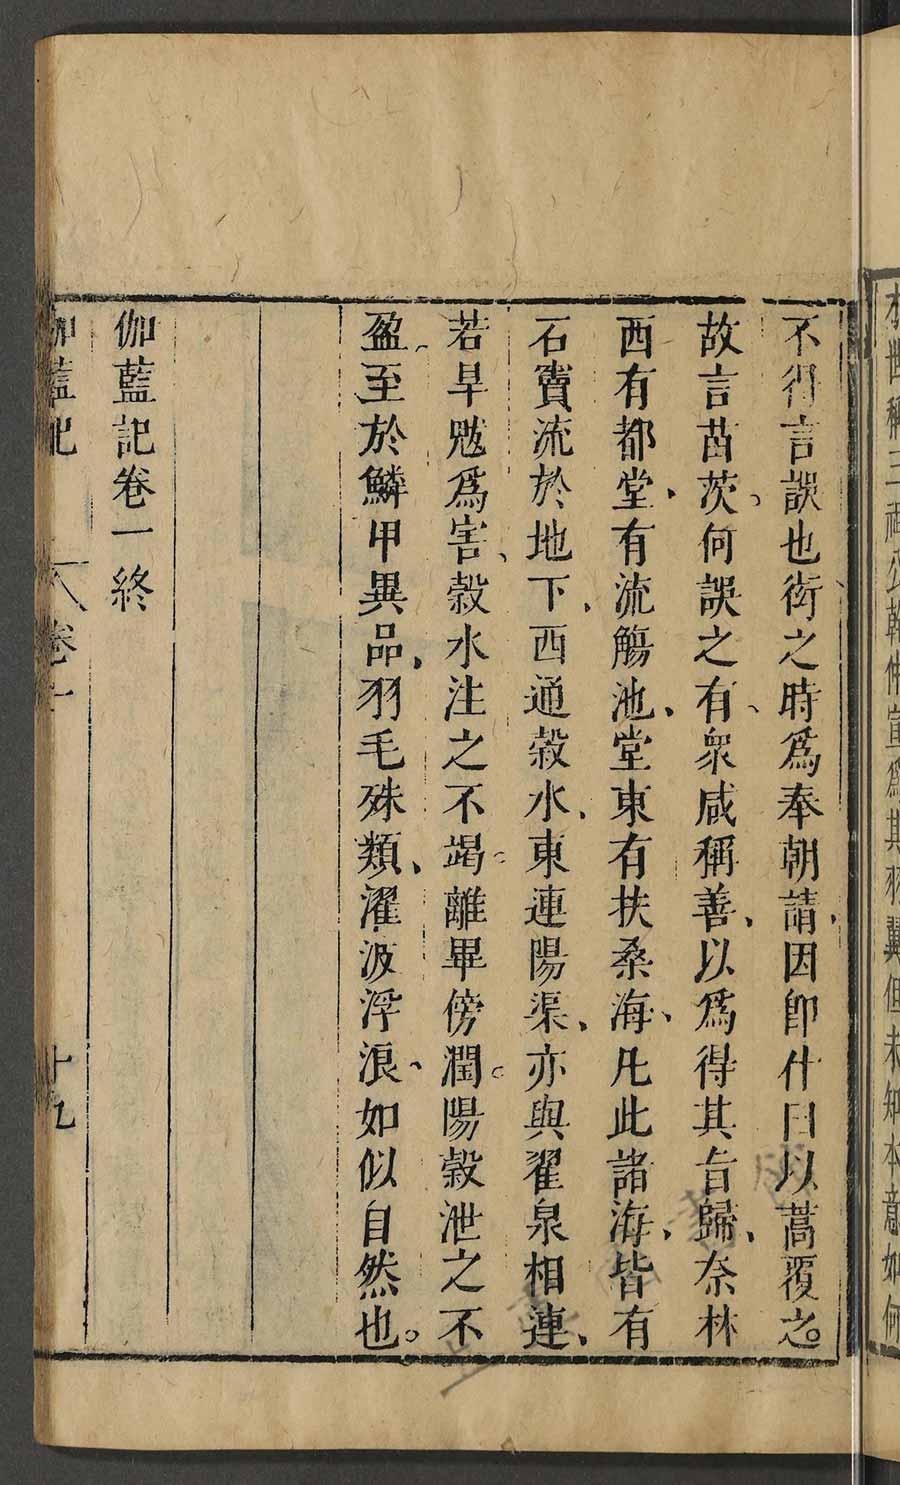 本世稱三祖公幹仲宣爲其羽翼但未知本意如何
不得言誤也衒之時爲奉朝請因卽什曰以蒿覆之
故言苗茨何誤之有衆咸稱善以爲得其旨歸奈林
西有都堂有流觴池堂東有扶桑海凡此諸海皆有
石竇流於地下西通榖水東連陽渠亦與翟泉相連
若旱魃爲害榖水注之不竭離畢傍潤陽榖泄之不
盈至於鱗甲異品羽毛殊類濯波浮浪如似自然也
伽藍記卷一終
伽藍記 卷一 十九